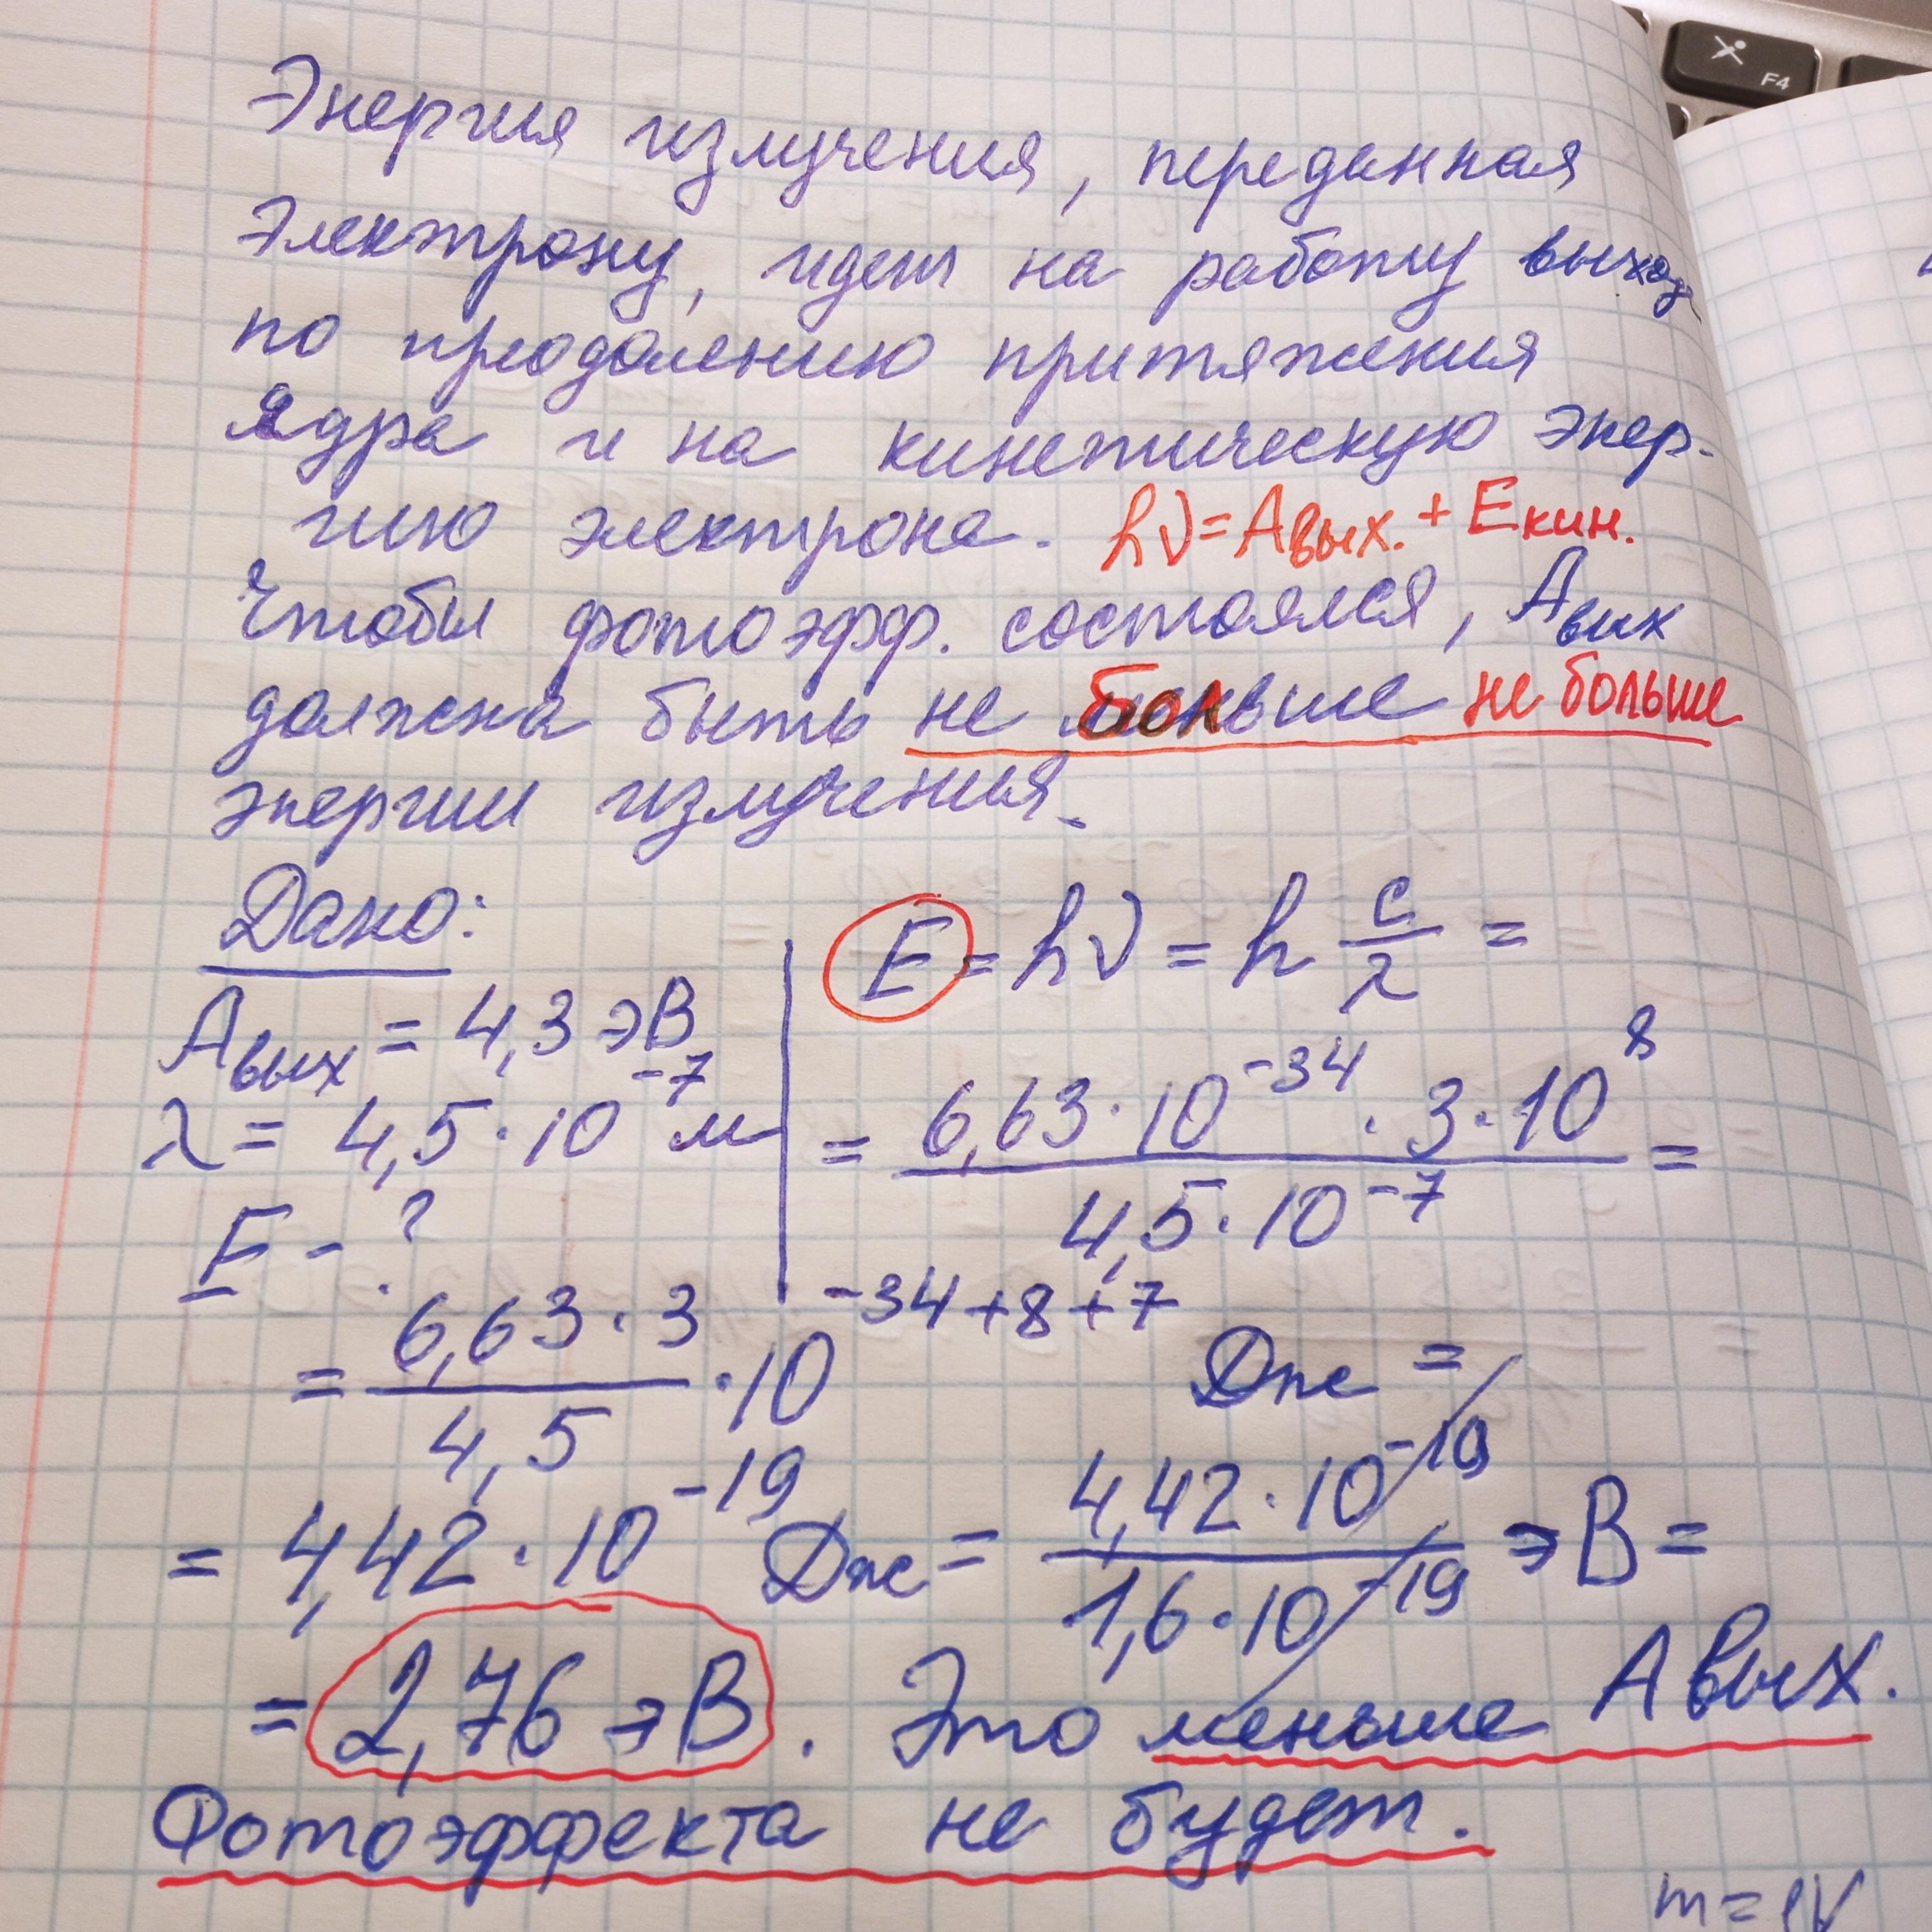 F4
Энергия излучения, переданная
электрону, идет на работу выход
по преодолению притяжения
ядра и на кинетическую энер-
гию электрона. hν = Aвых. + Eкин.
Чтобы фотоэфф. состоялся, Aвых
должна быть не больше не больше
энергии излучения.
Дано:
Aвых = 4,3 эВ
λ = 4,5 · 10⁻⁷ м
E - ?
E = hν = h c/λ =
= 6,63 · 10⁻³⁴ · 3 · 10⁸ / 4,5 · 10⁻⁷ =
= 6,63 · 3 / 4,5 · 10⁻³⁴⁺⁸⁺⁷ Дж =
= 4,42 · 10⁻¹⁹ Дж = 4,42 · 10⁻¹⁹ / 1,6 · 10⁻¹⁹ эВ =
= 2,76 эВ. Это меньше Aвых.
Фотоэффекта не будет.